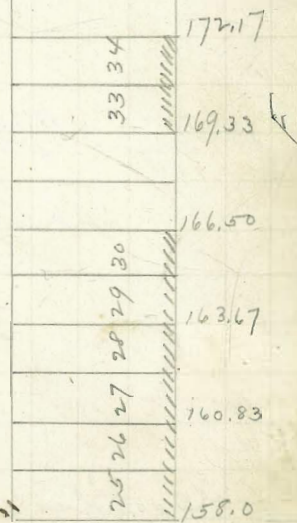 172.17
34
33
169.33
166.50
30
29
163.67
28
27
160.83
26
25
158.0